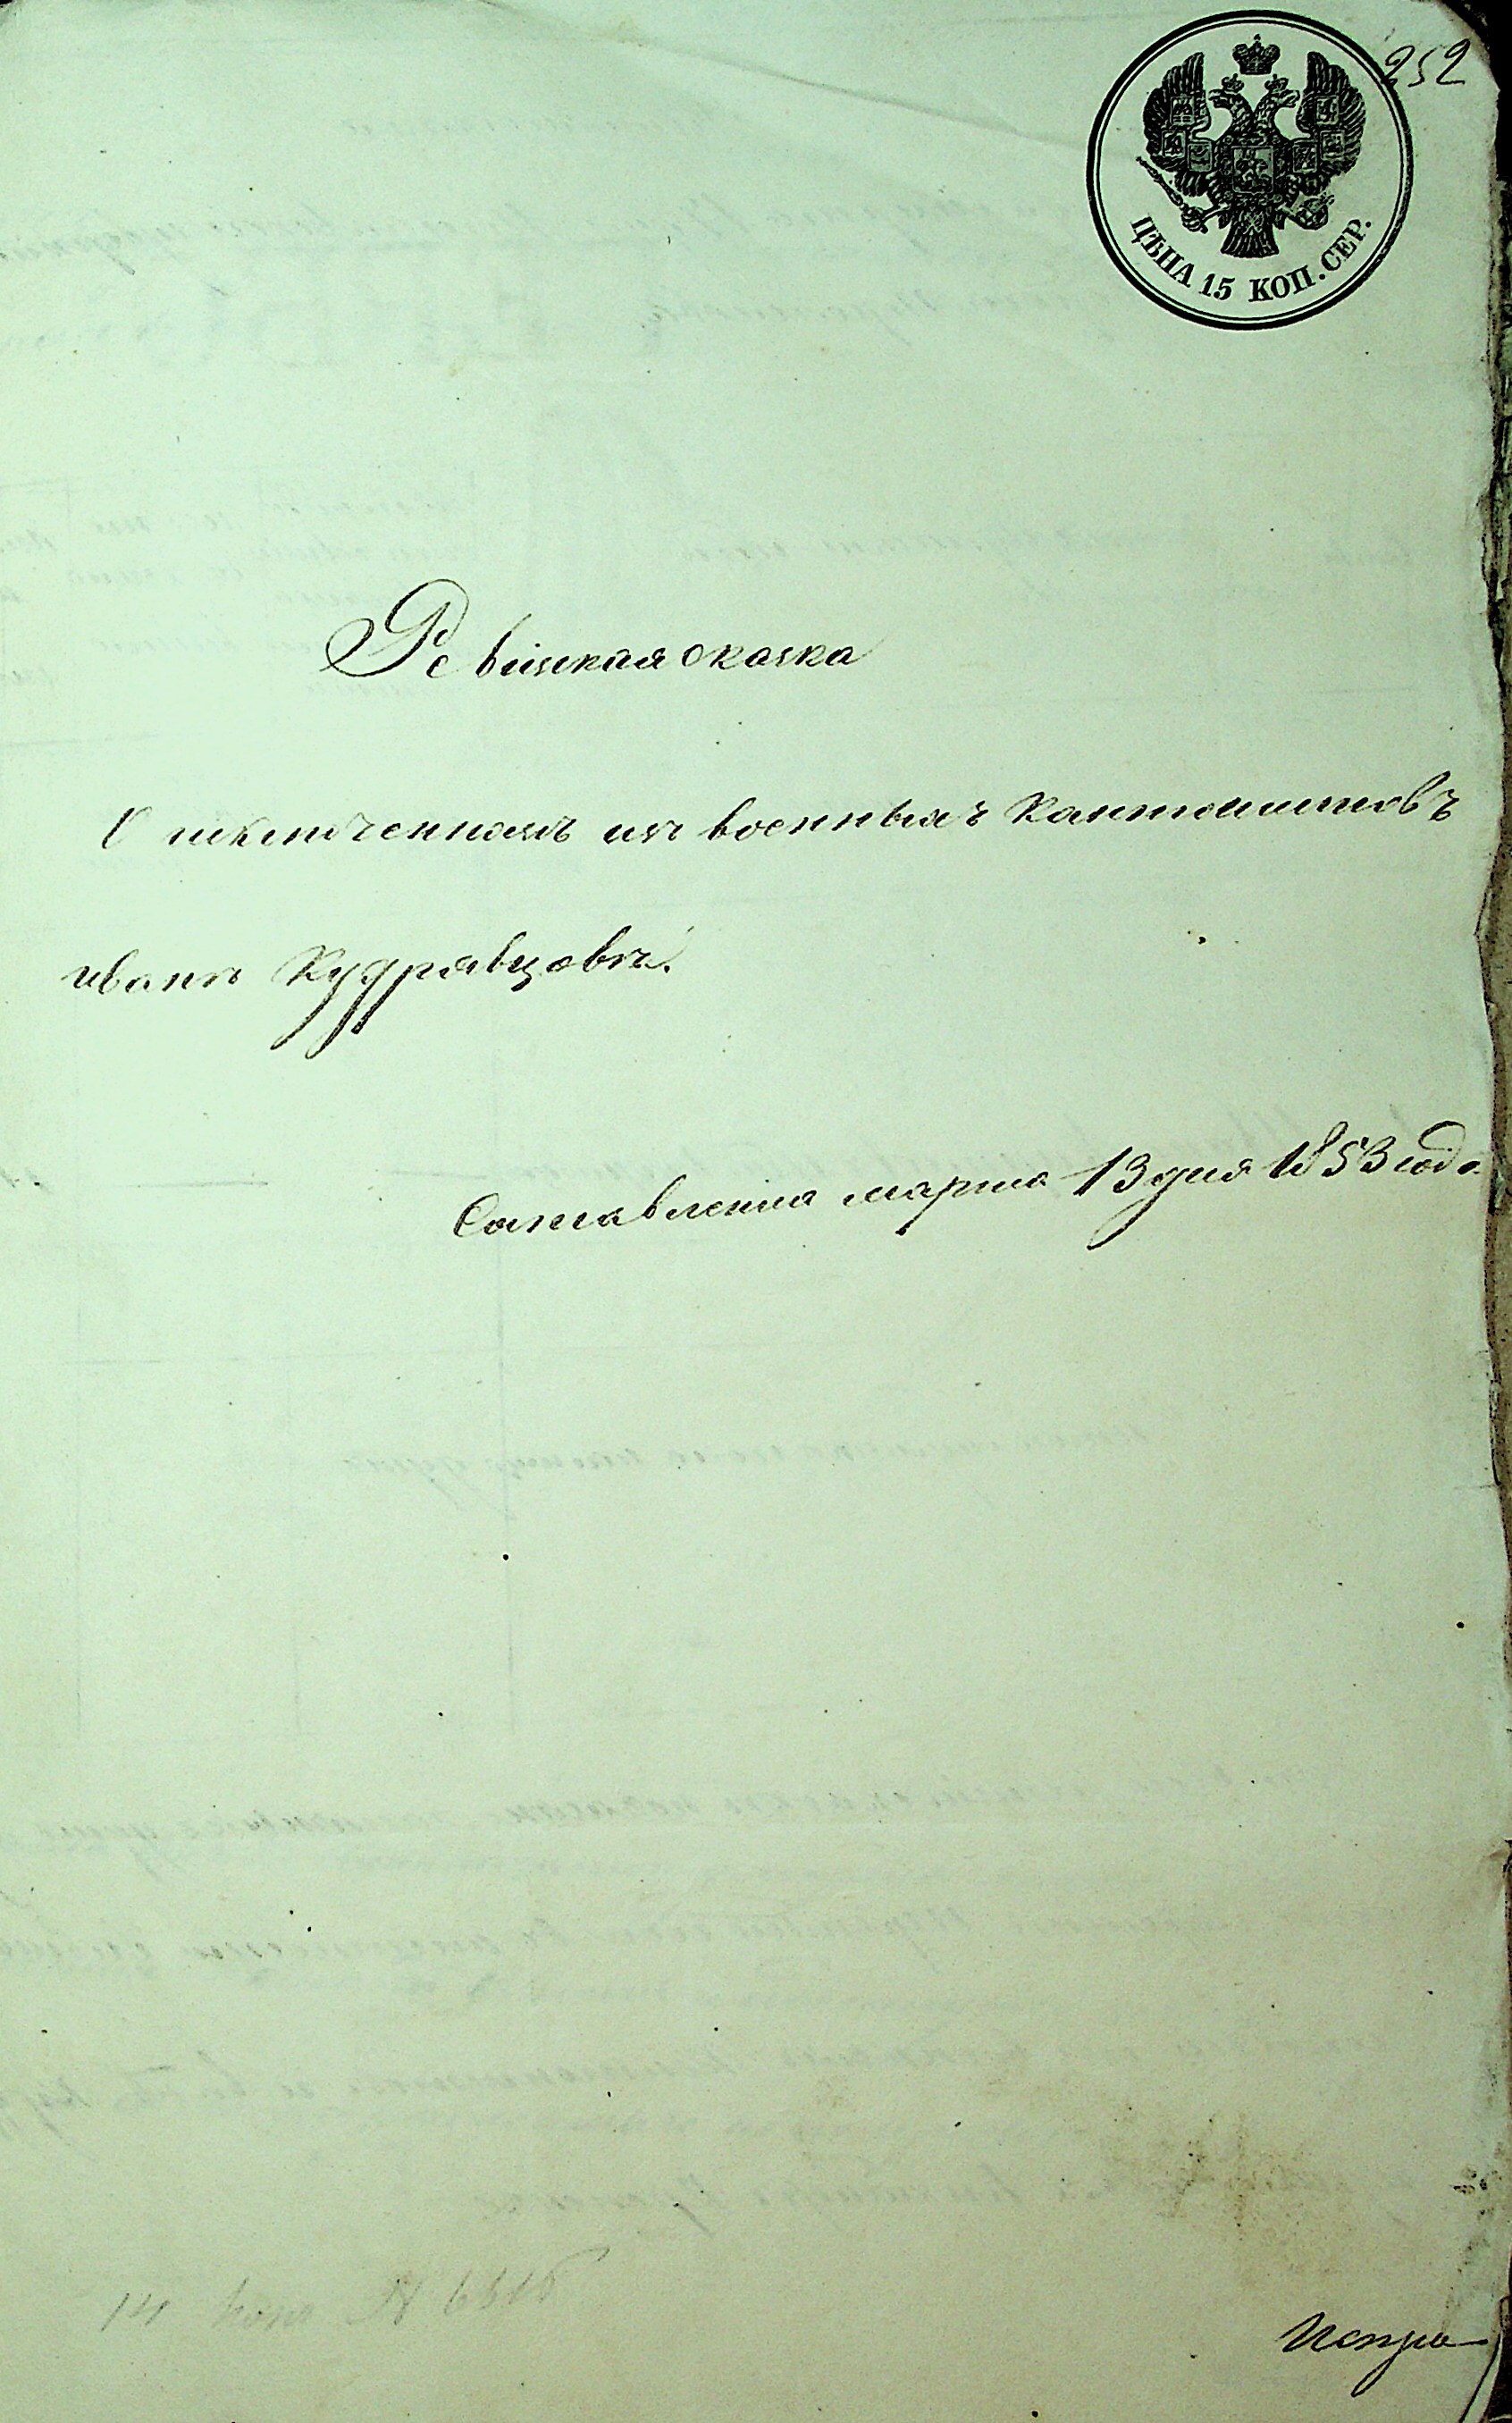 252
ЦѢНА 15 КОП. СЕР.
Ревизская скаска
О исключенномъ изъ военныхъ кантонистовъ
Иванѣ Кудрявцовѣ.
Составленна марта 13 дня 1853 года
Испра